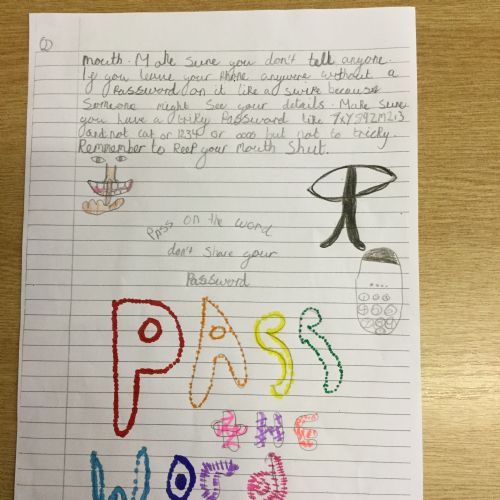 ②
mouth. Make sure you don't tell anyone.
If you leave your Phone anywere without a
Password on it like a swipe because
Someone might see your details. Make sure
you have a triky Password like
and not cat or 1234 or 0000 but not to tricky.
Remmember to keep your mouth Shut.
Pass on the word
don't share your
Password
PASS
tHE
word